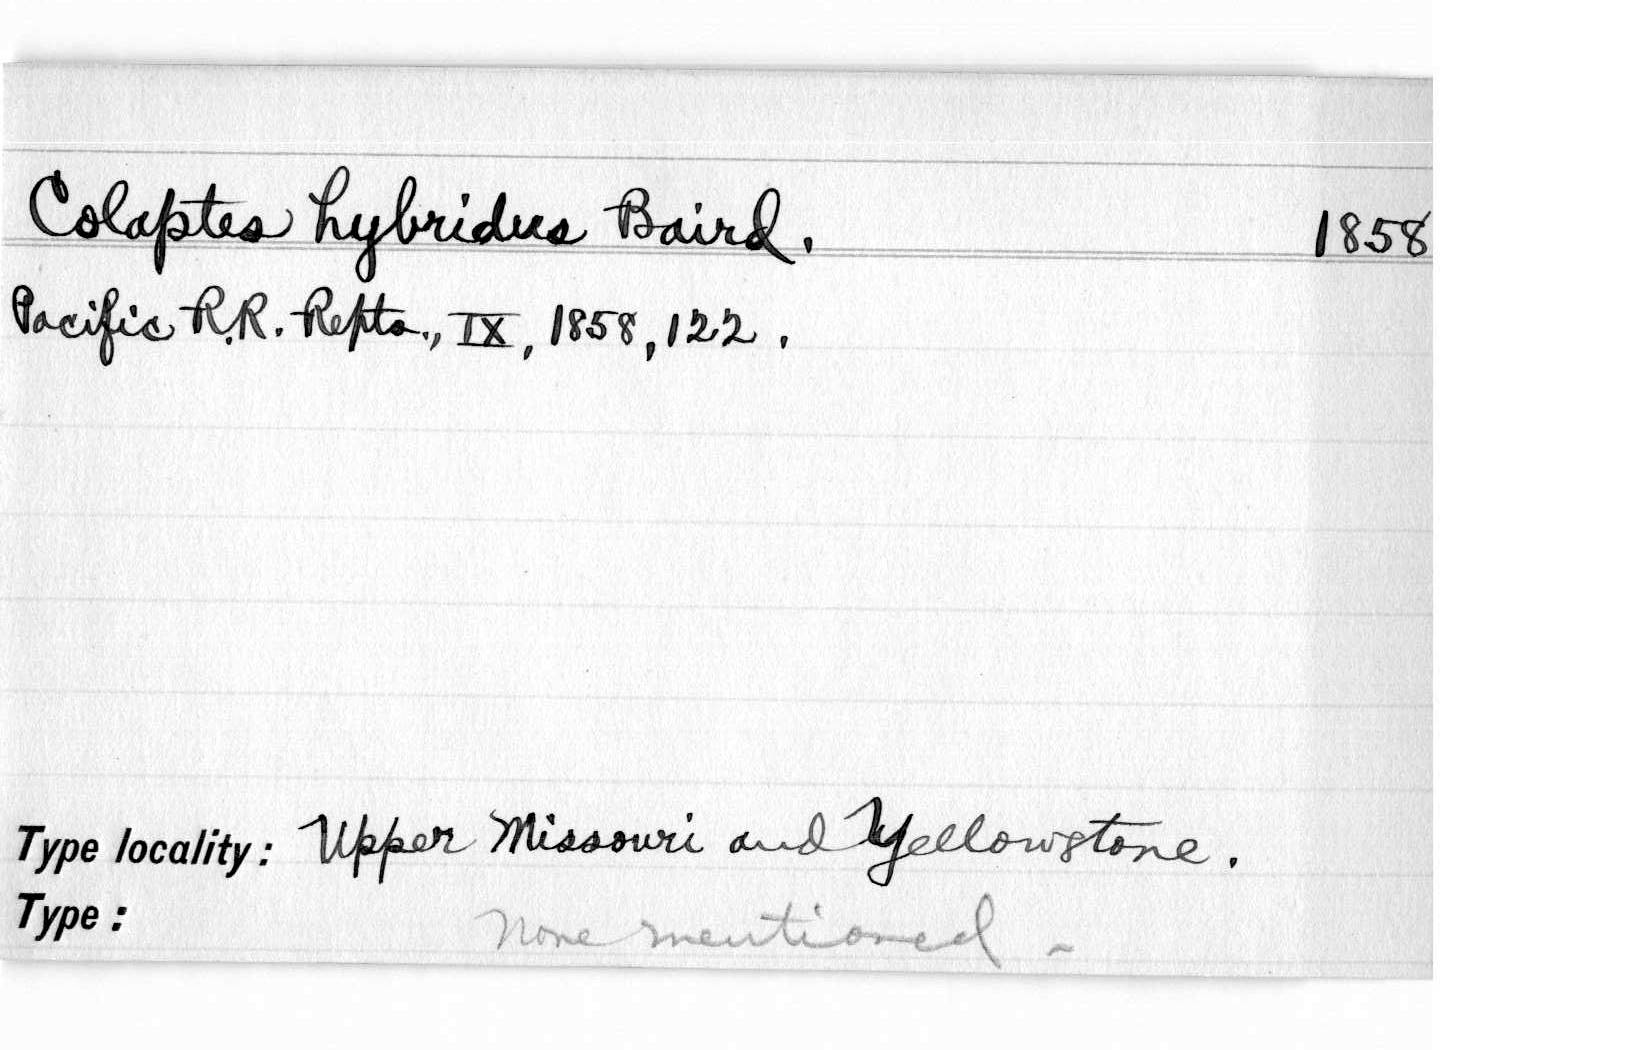 Colaptes hybridus Baird. 1858
Pacific R.R. Repts., IX, 1858, 122.
Type locality: Upper Missouri and Yellowstone.
Type: None mentioned -